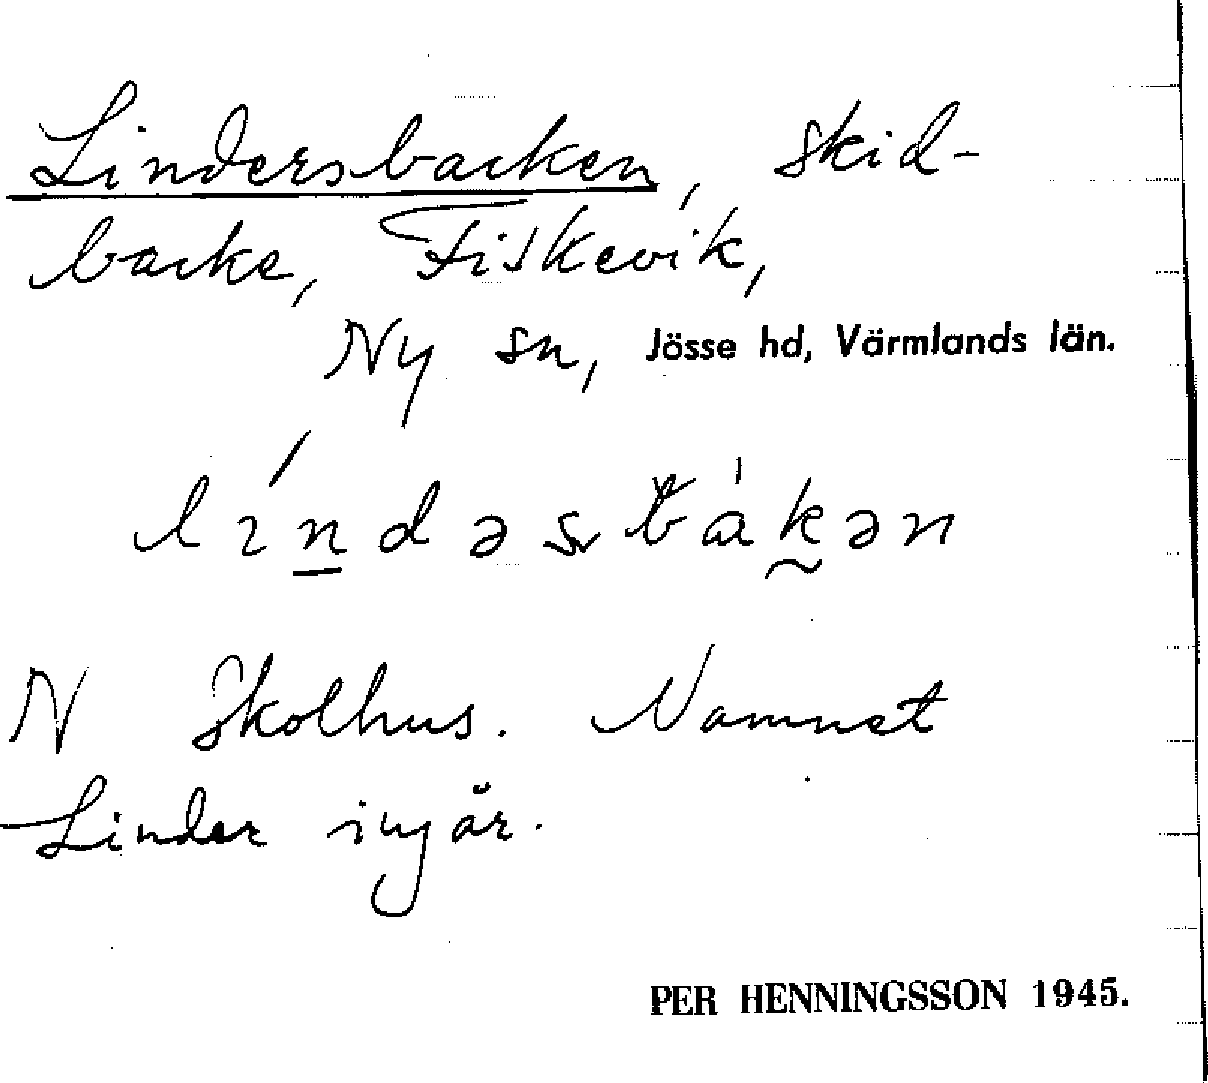 Lindersbacken, skid-
backe, Fiskevik,
Ny sn, Jösse hd, Värmlands län.
líndəsbákən
N Skolhus. Namnet
Linder ingår.
PER HENNINGSSON 1945.